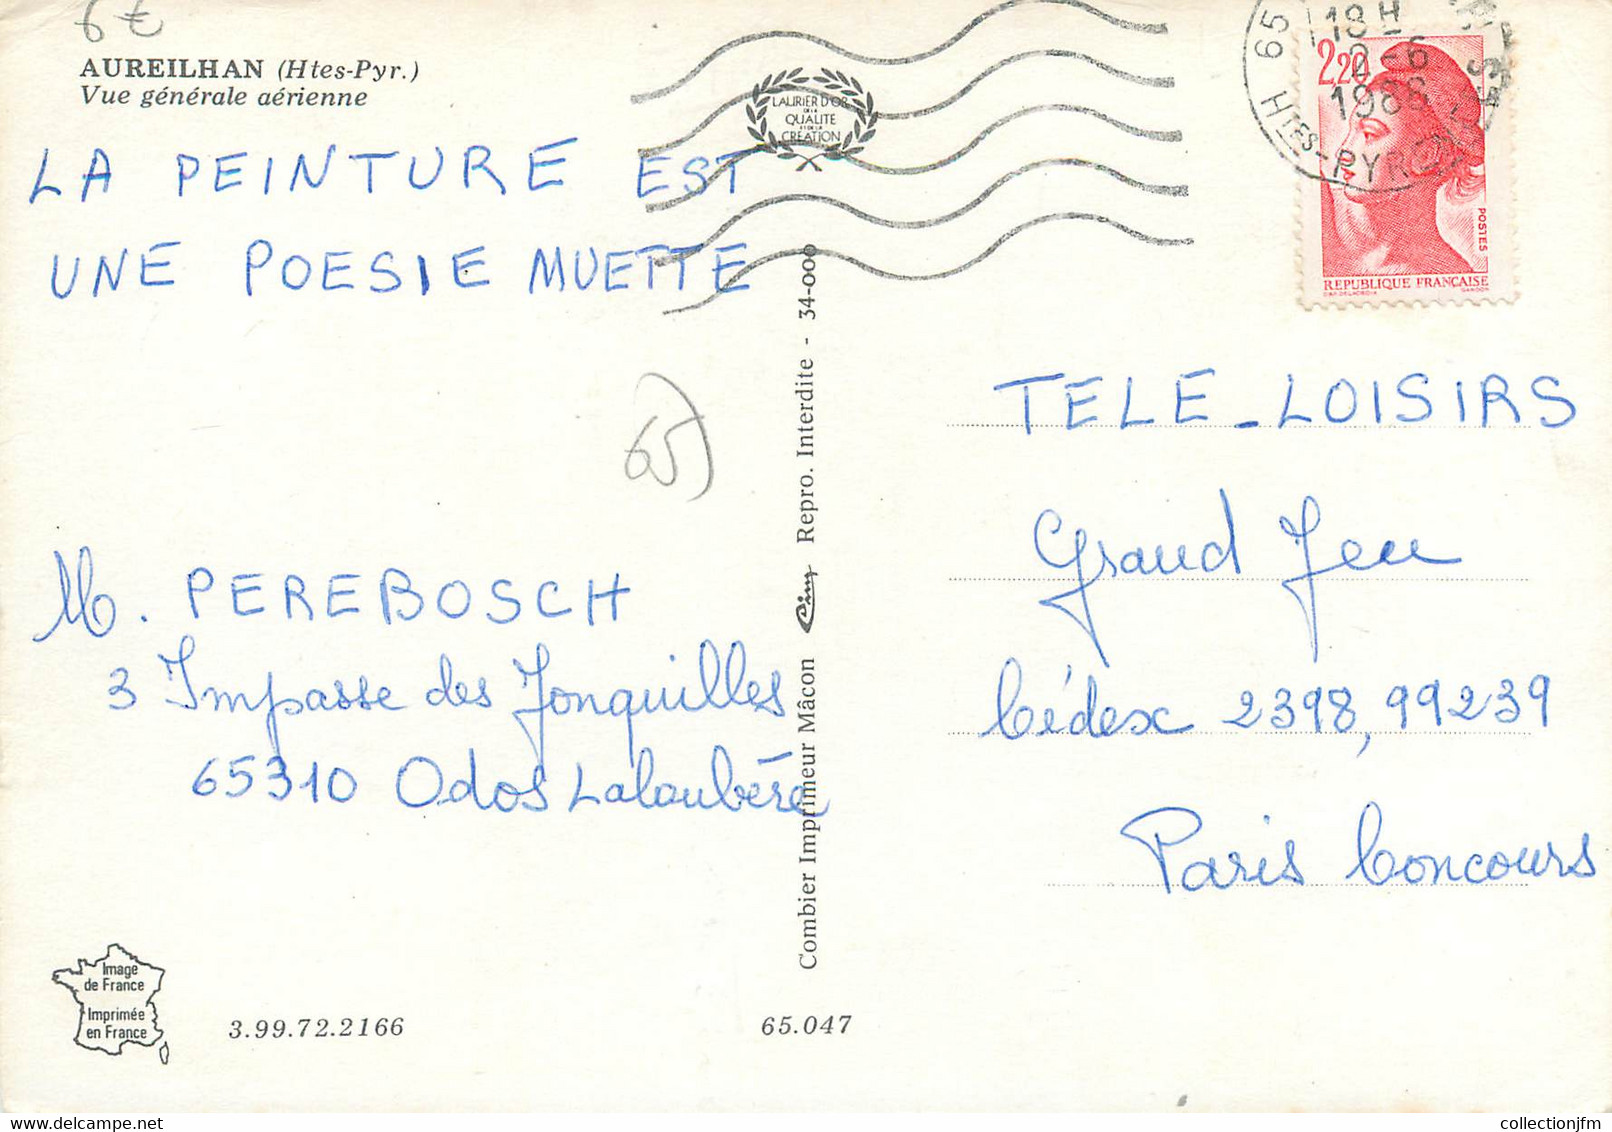 6 €
AUREILHAN (Htes-Pyr.)
Vue générale aérienne
LA PEINTURE EST
UNE POESIE MUETTE
65
M. PEREBOSCH
3 Impasse des Jonquilles
65310 Odos Laloubère
Image
de France
Imprimée
en France
3.99.72.2166
65.047
LAURIER D'OR
DE LA
QUALITE
ET DE LA
CREATION
Combier Imprimeur Mâcon Cim Repro. Interdite - 34-000
65
18 H
2-6
1986
HTES-PYRENEES
2,20
POSTES
REPUBLIQUE FRANCAISE
D'AP. DELACROIX GANDON
TELE-LOISIRS
Grand Jeu
Cédex 2398, 99239
Paris Concours
collectionjfm